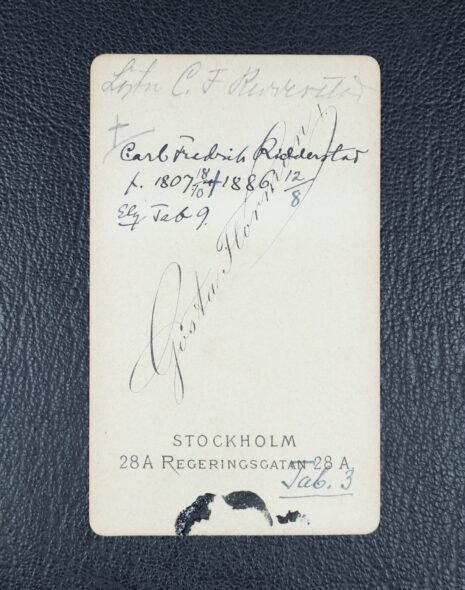 C. F. Ridderstad
Carl Fredrik Ridderstad
f. 1807 18/10 + 1886 12/8
Tab 9.
Gösta Florman
STOCKHOLM
28A REGERINGSGATAN 28A
Tab. 3